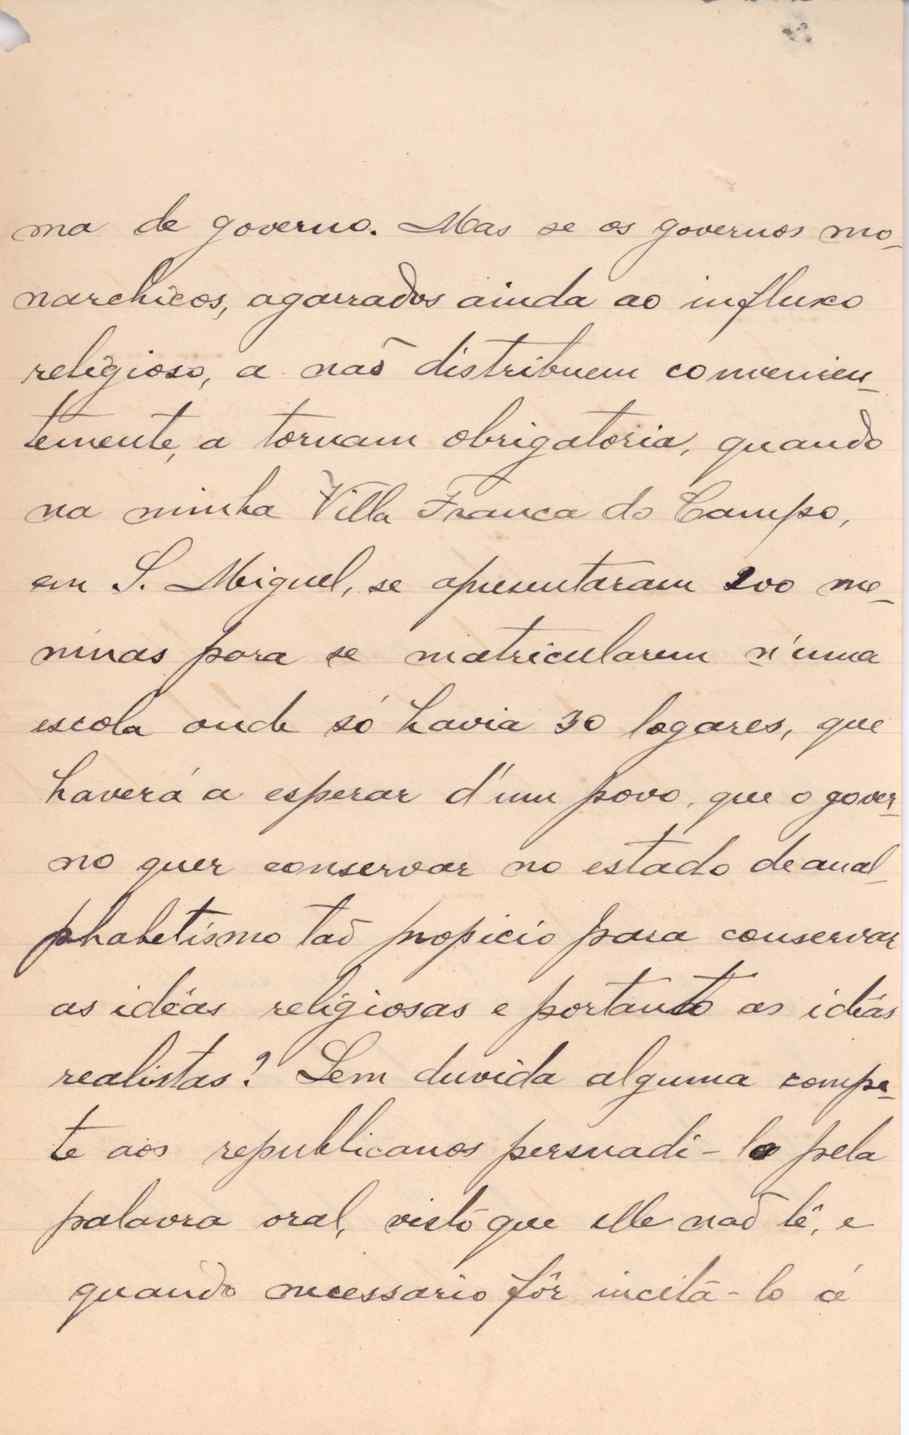 ma de governo. Mas se os governos mo-
narchicos, agarrados ainda ao influxo
religioso, a naõ distribuem convenien-
temente, a tornam obrigatoria, quando
na minha Villa Franca do Campo,
em S. Miguel, se apresentaram 200 me-
ninas para se matricularem n'uma
escola onde só havia 30 logares, que
haverá a esperar d'um povo, que o gover-
no quer conservar no estado de anal-
phabetismo taõ propicio para conservar
as idéas religiosas e portanto as idéas
realistas? Sem duvida alguma compe-
te aos republicanos persuadi-lo pela
palavra oral, visto que elle naõ lê, e
quando necessario fôr incitá-lo á